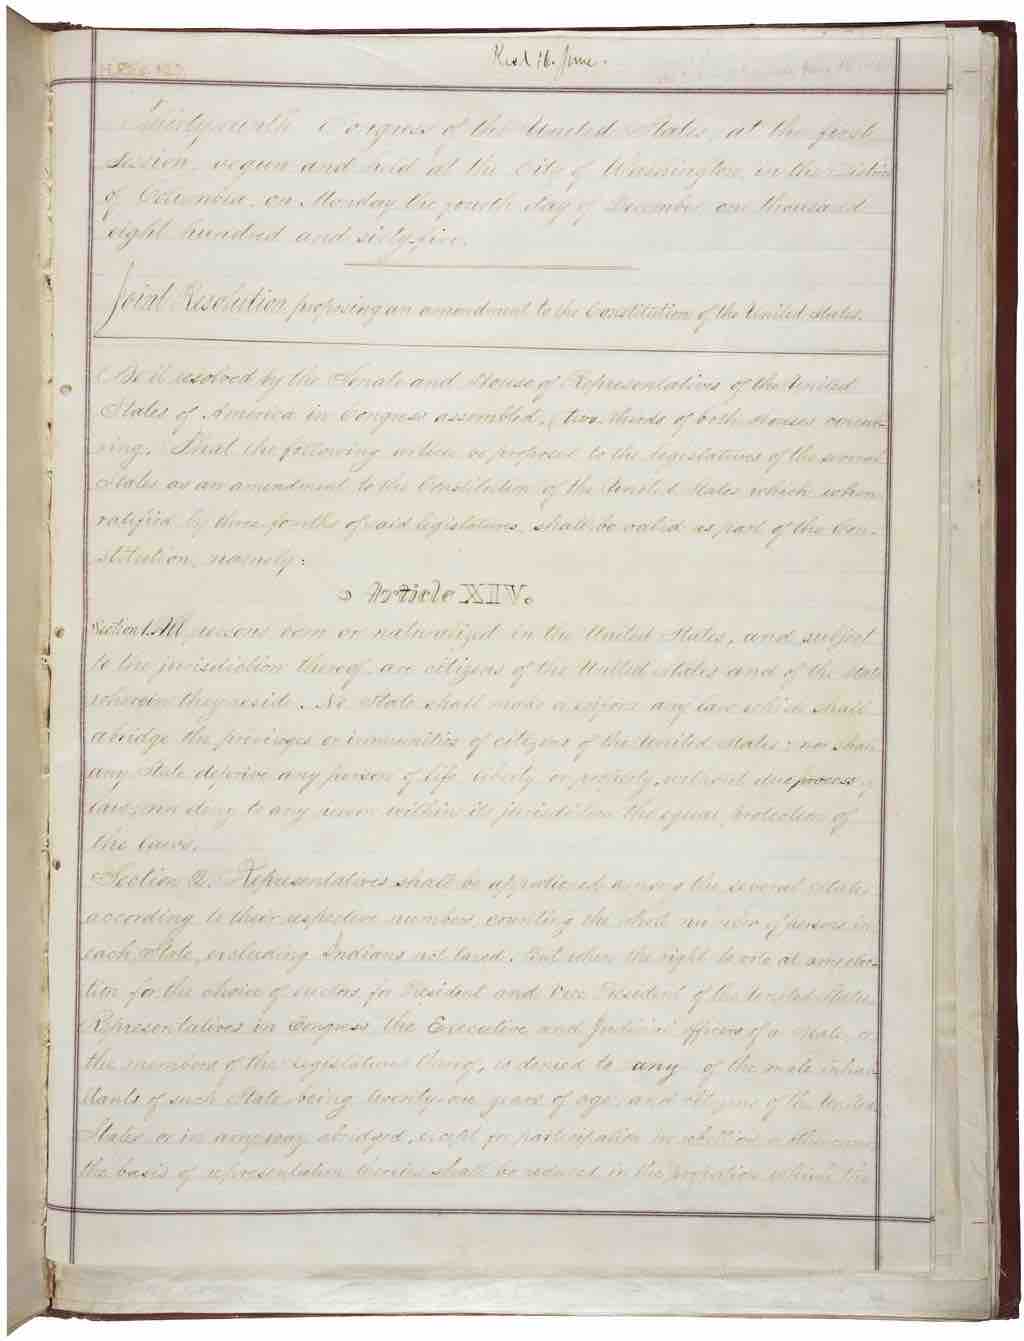 Rec'd 16. June.
Thirty-ninth Congress of the United States, at the first
session, begun and held at the City of Washington, in the District
of Columbia, on Monday the fourth day of December one thousand
eight hundred and sixty-five.
Joint Resolution proposing an amendment to the Constitution of the United States.
Be it resolved by the Senate and House of Representatives of the United
States of America in Congress assembled, (two-thirds of both Houses concur-
ring,) That the following article be proposed to the legislatures of the several
States as an amendment to the Constitution of the United States, which, when
ratified by three-fourths of said legislatures, shall be valid as part of the Con-
stitution, namely:
Article XIV.
Section 1. All persons born or naturalized in the United States, and subject
to the jurisdiction thereof, are citizens of the United States and of the State
wherein they reside. No State shall make or enforce any law which shall
abridge the privileges or immunities of citizens of the United States; nor shall
any State deprive any person of life, liberty, or property, without due process of
law; nor deny to any person within its jurisdiction the equal protection of
the laws.
Section 2. Representatives shall be apportioned among the several States
according to their respective numbers, counting the whole number of persons in
each State, excluding Indians not taxed. But when the right to vote at any elec-
tion for the choice of electors for President and Vice President of the United States,
Representatives in Congress, the Executive and Judicial officers of a State, or
the members of the Legislature thereof, is denied to any of the male inhabi-
tants of such State, being twenty-one years of age, and citizens of the United
States, or in any way abridged, except for participation in rebellion, or other crime,
the basis of representation therein shall be reduced in the proportion which the